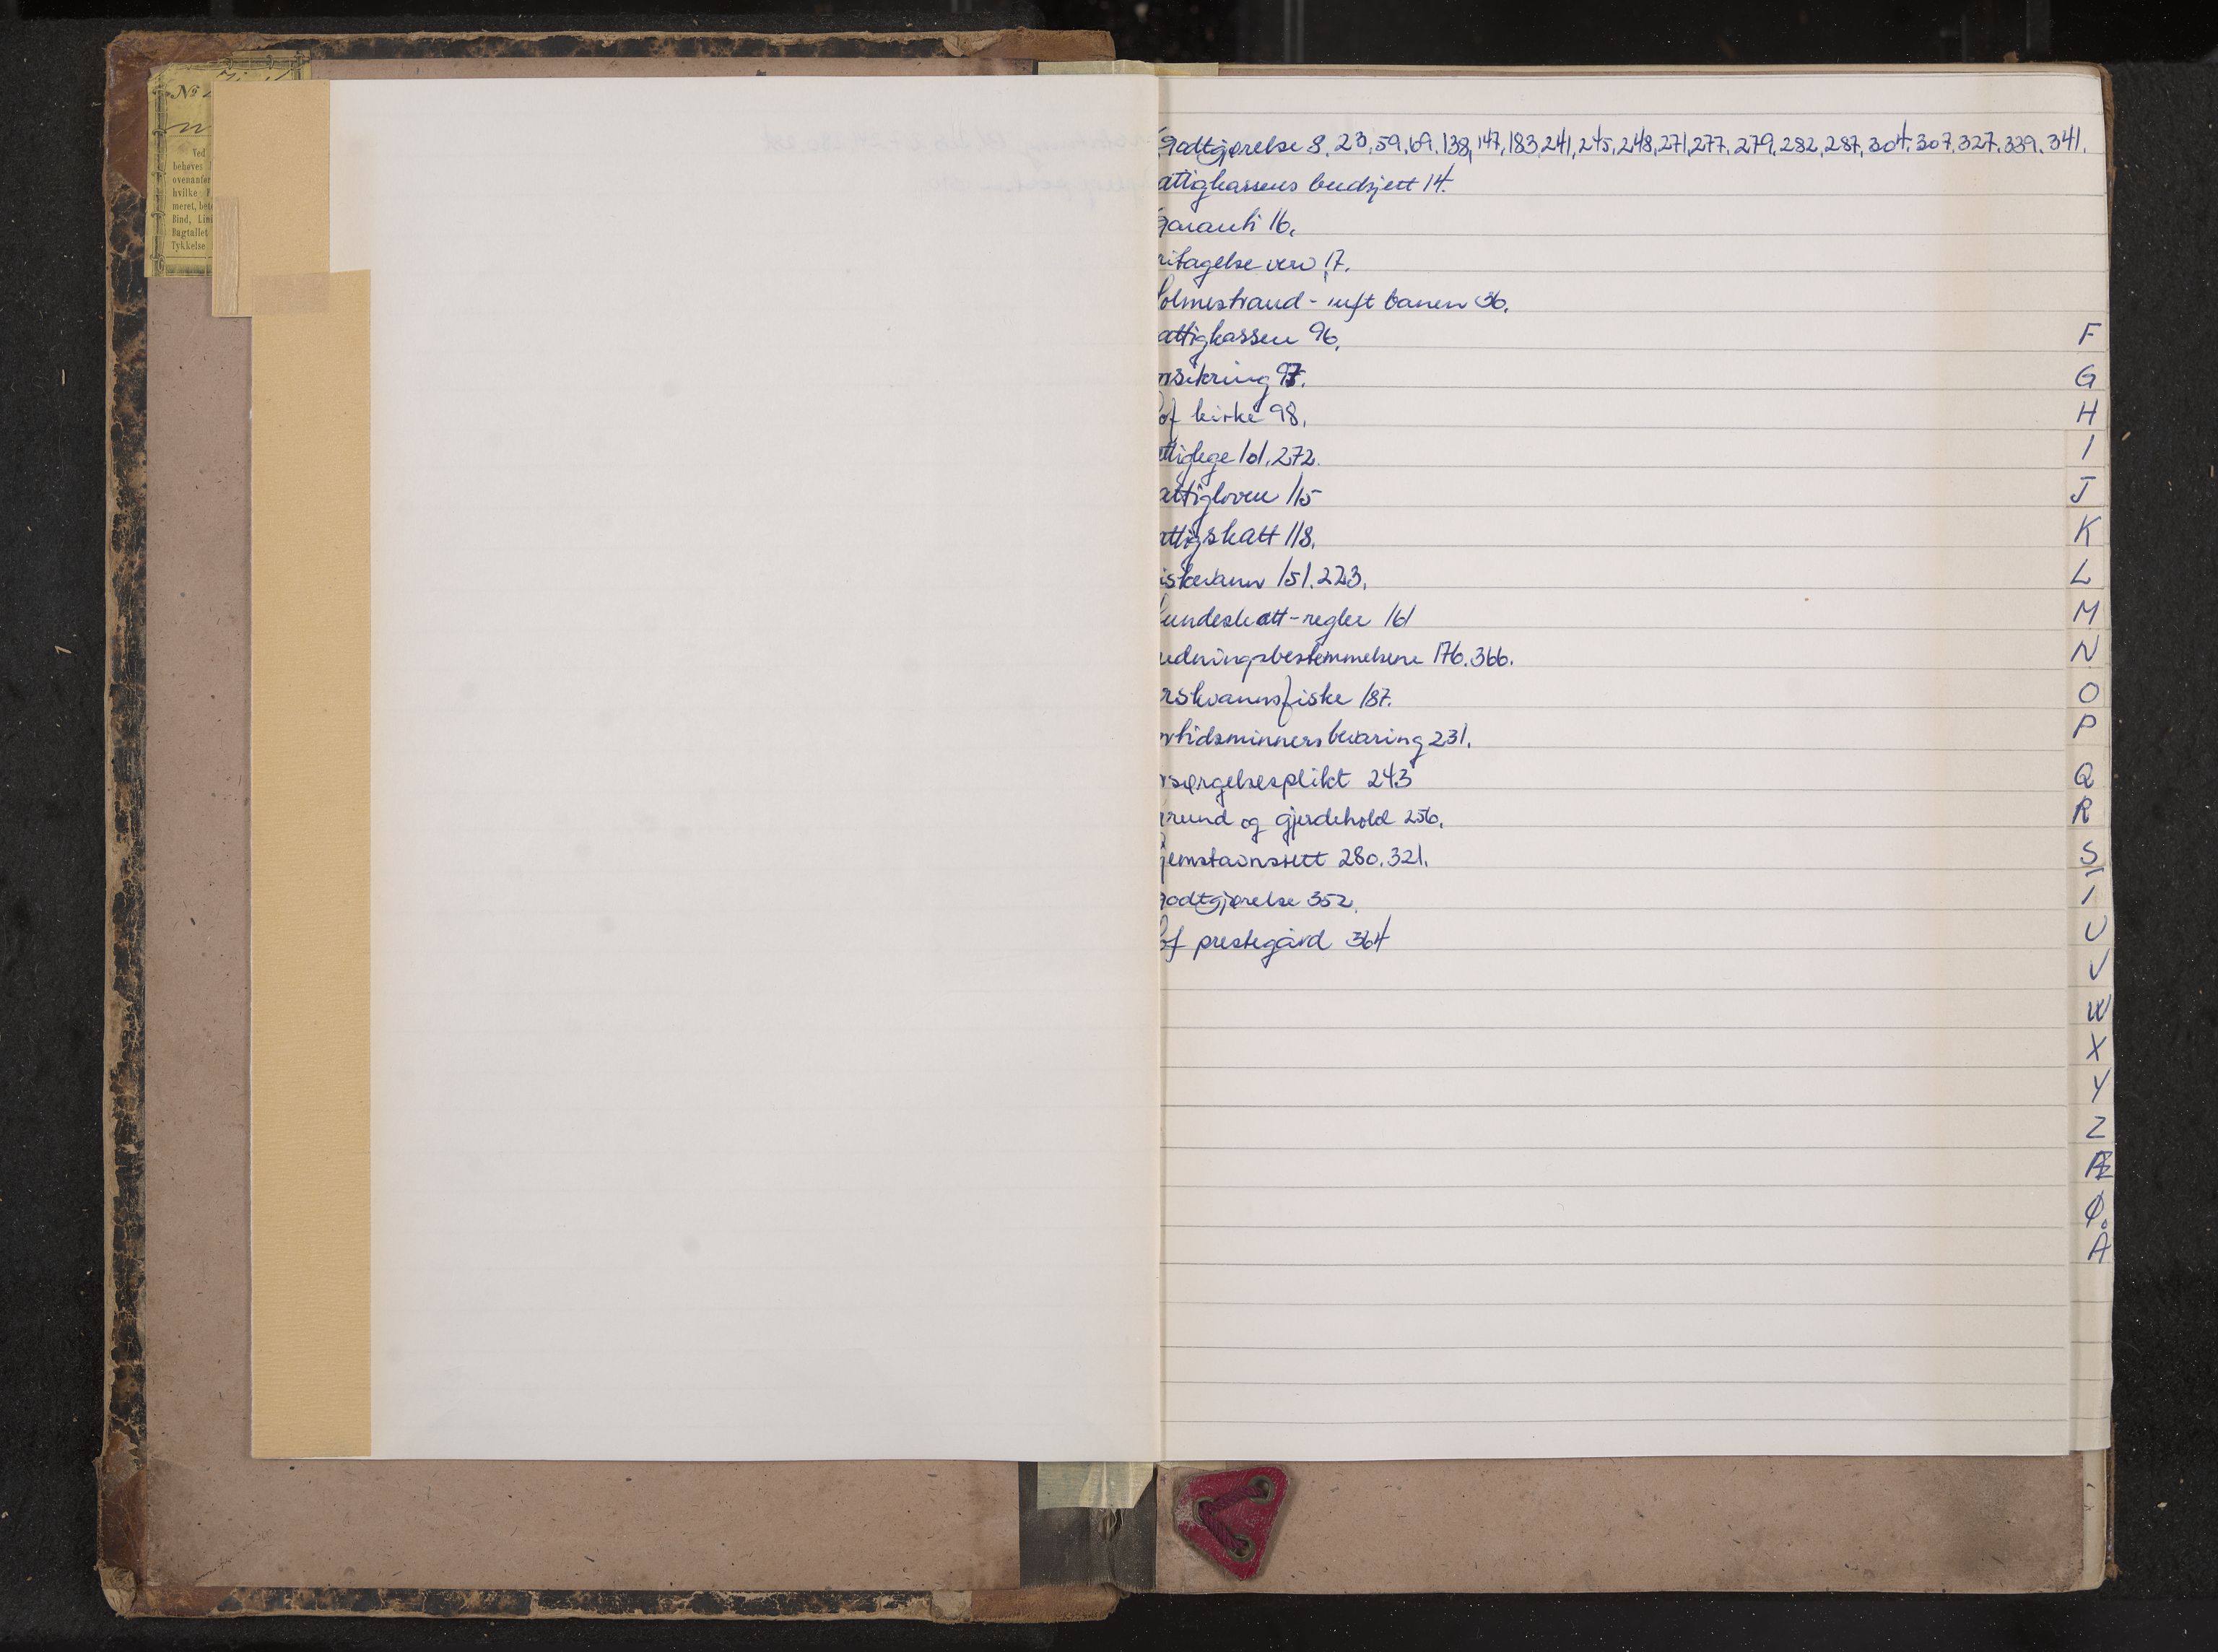 No
Ved
behøves
ovenanfør
hvilke F
meret, bet
Bind, Lini
Bagtallet
Tykkelse
Godtgjørelse 8. 23, 59, 69. 138, 147, 183, 241, 245, 248, 271, 277. 279, 282, 287, 304. 307. 327. 339. 341.
attigkassens budsjett 14.
Garanti 16.
ritagelse verv 17.
olmestrand - banen 36.
attigkassen 96.
rsikring 97.
of kirke 98.
attiglege 101. 272.
attigloven 115
attigskatt 118.
iskevann 151. 223.
undeskatt - regler 161
redningsbestemmelsene 176. 366.
rskvannsfiske 187.
rtidsminners bevaring 231.
rsørgelsesplikt 243
rund og gjerdehold 256.
jemstavnsrett 280. 321.
Godtgjørelse 352.
of prestegård 364
F
G
H
I
J
K
L
M
N
O
P
Q
R
S
T
U
V
W
X
Y
Z
Æ
Ø
Å